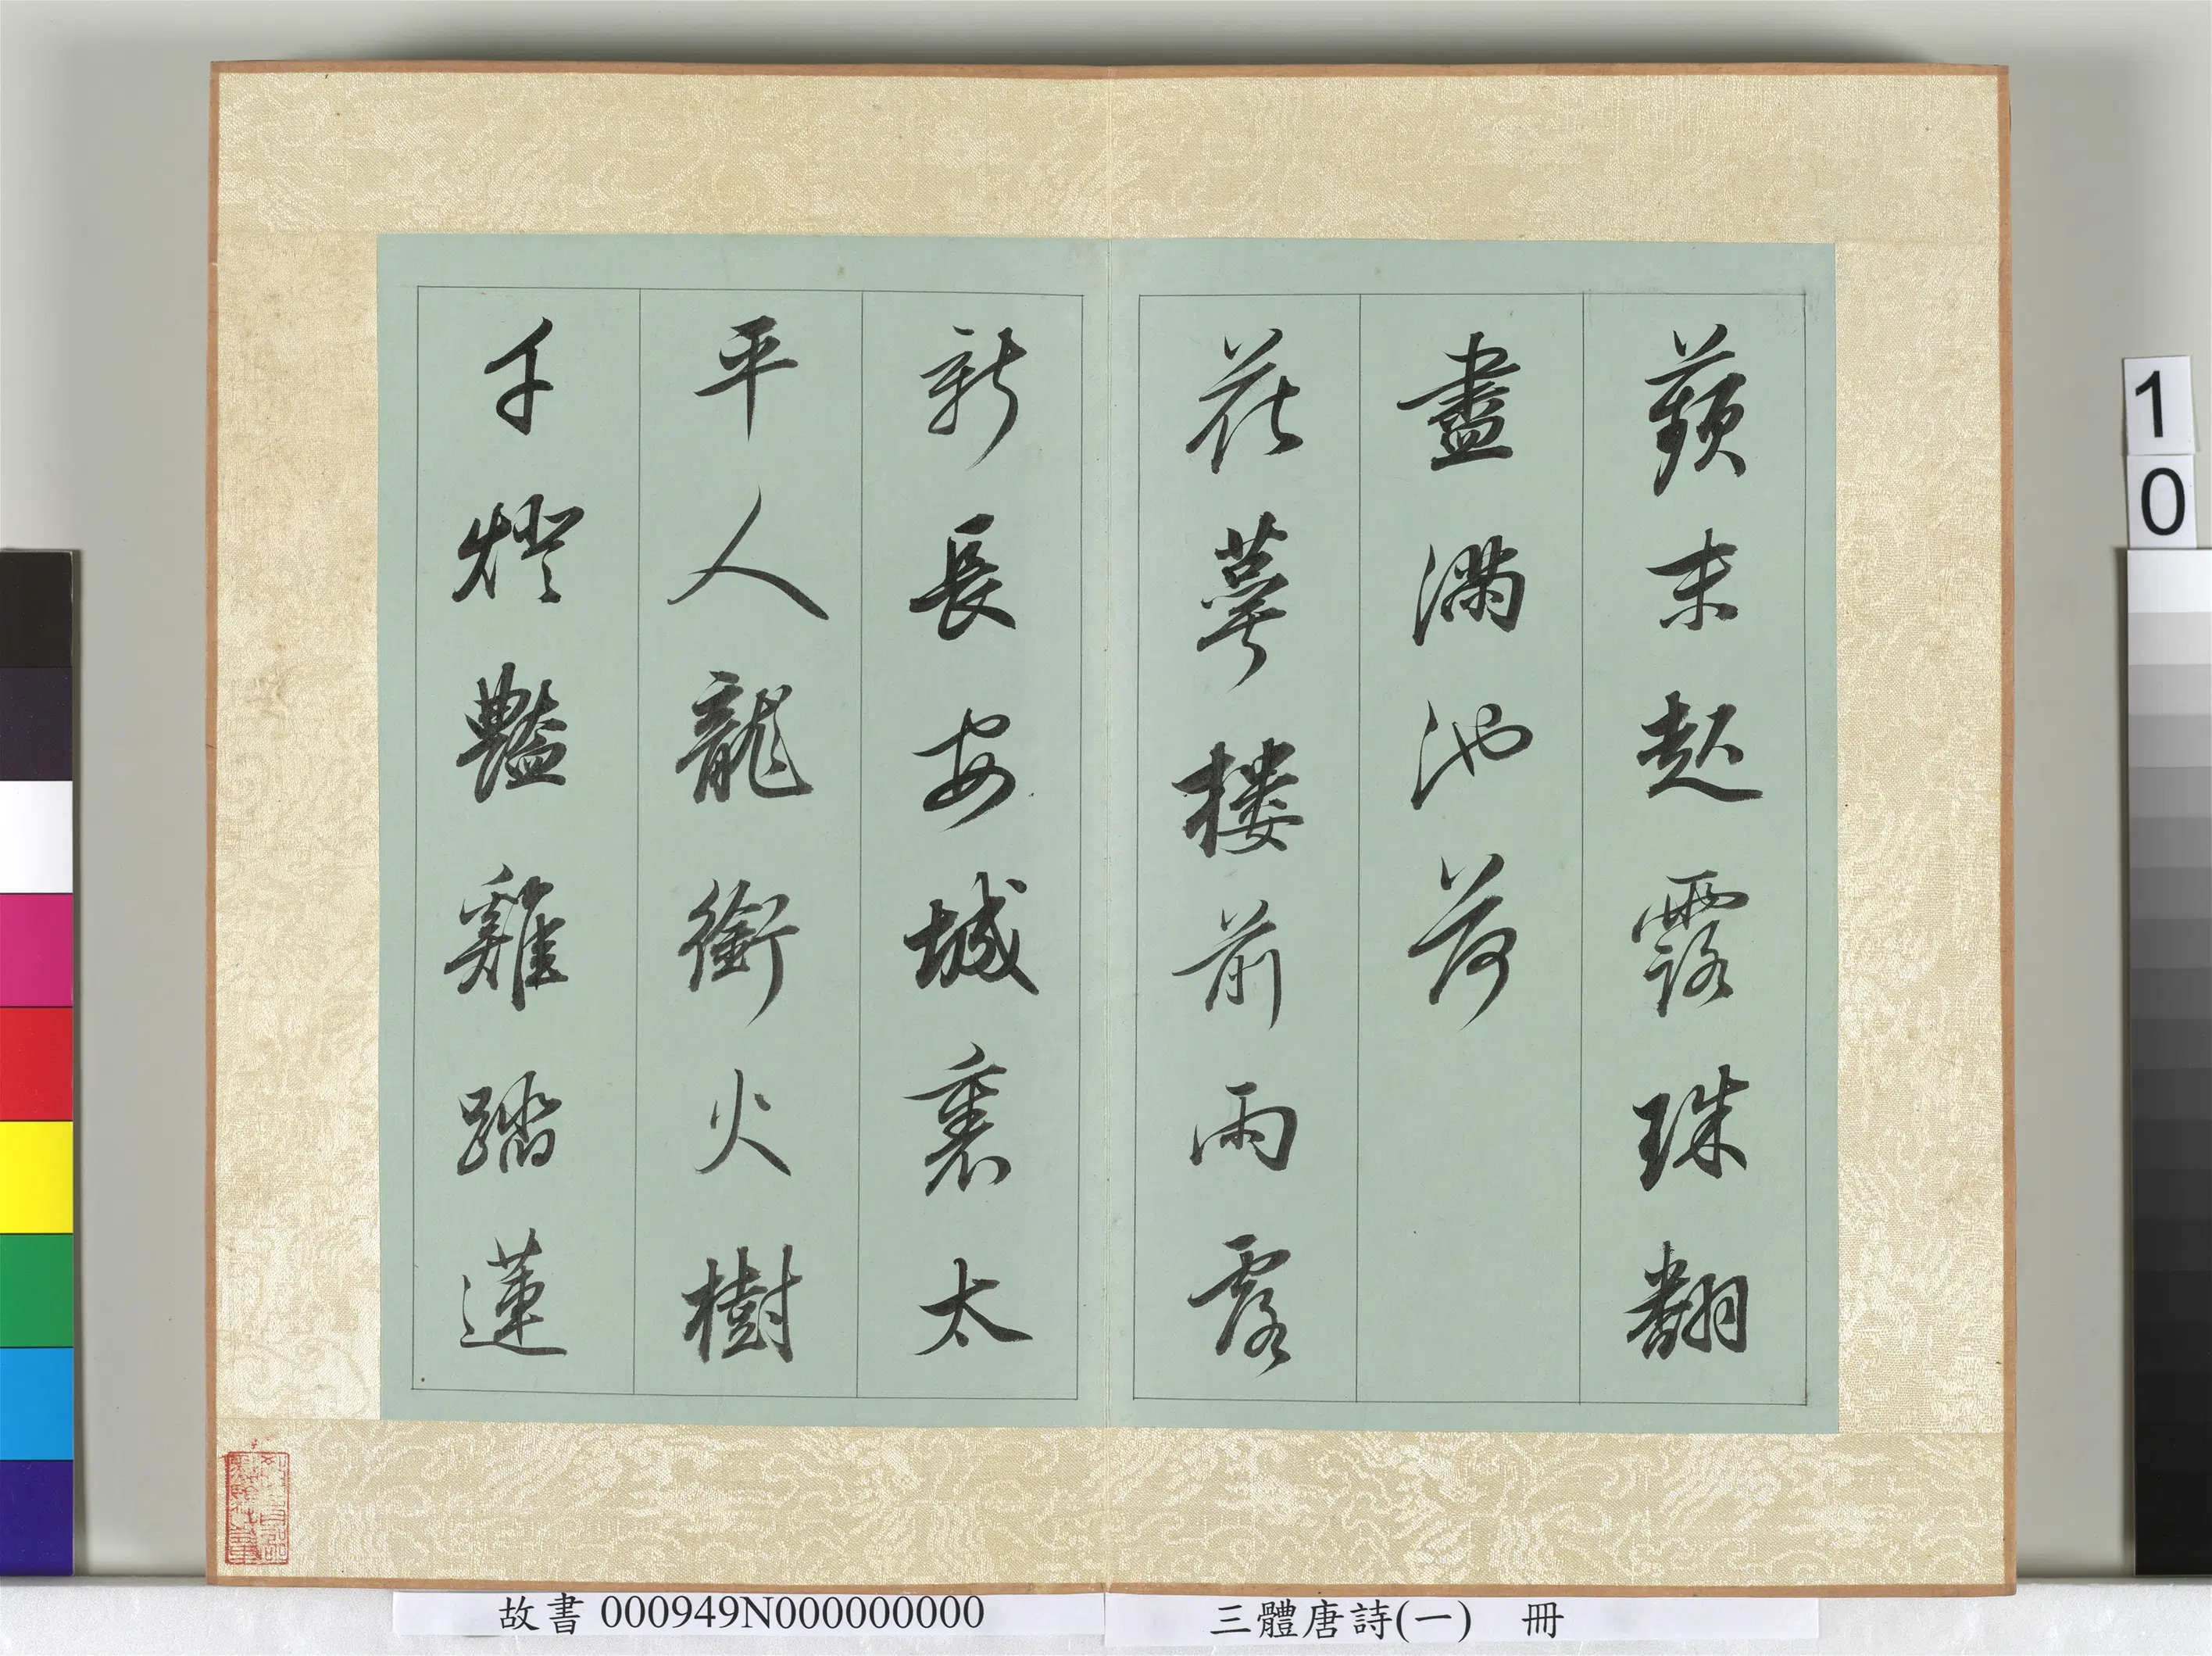 蘋末起露珠翻
盡滿池荷
花萼樓前雨露
新長安城裏太
平人龍銜火樹
千燈豔雞踏蓮
故書 000949N000000000
三體唐詩(一) 冊
1
0